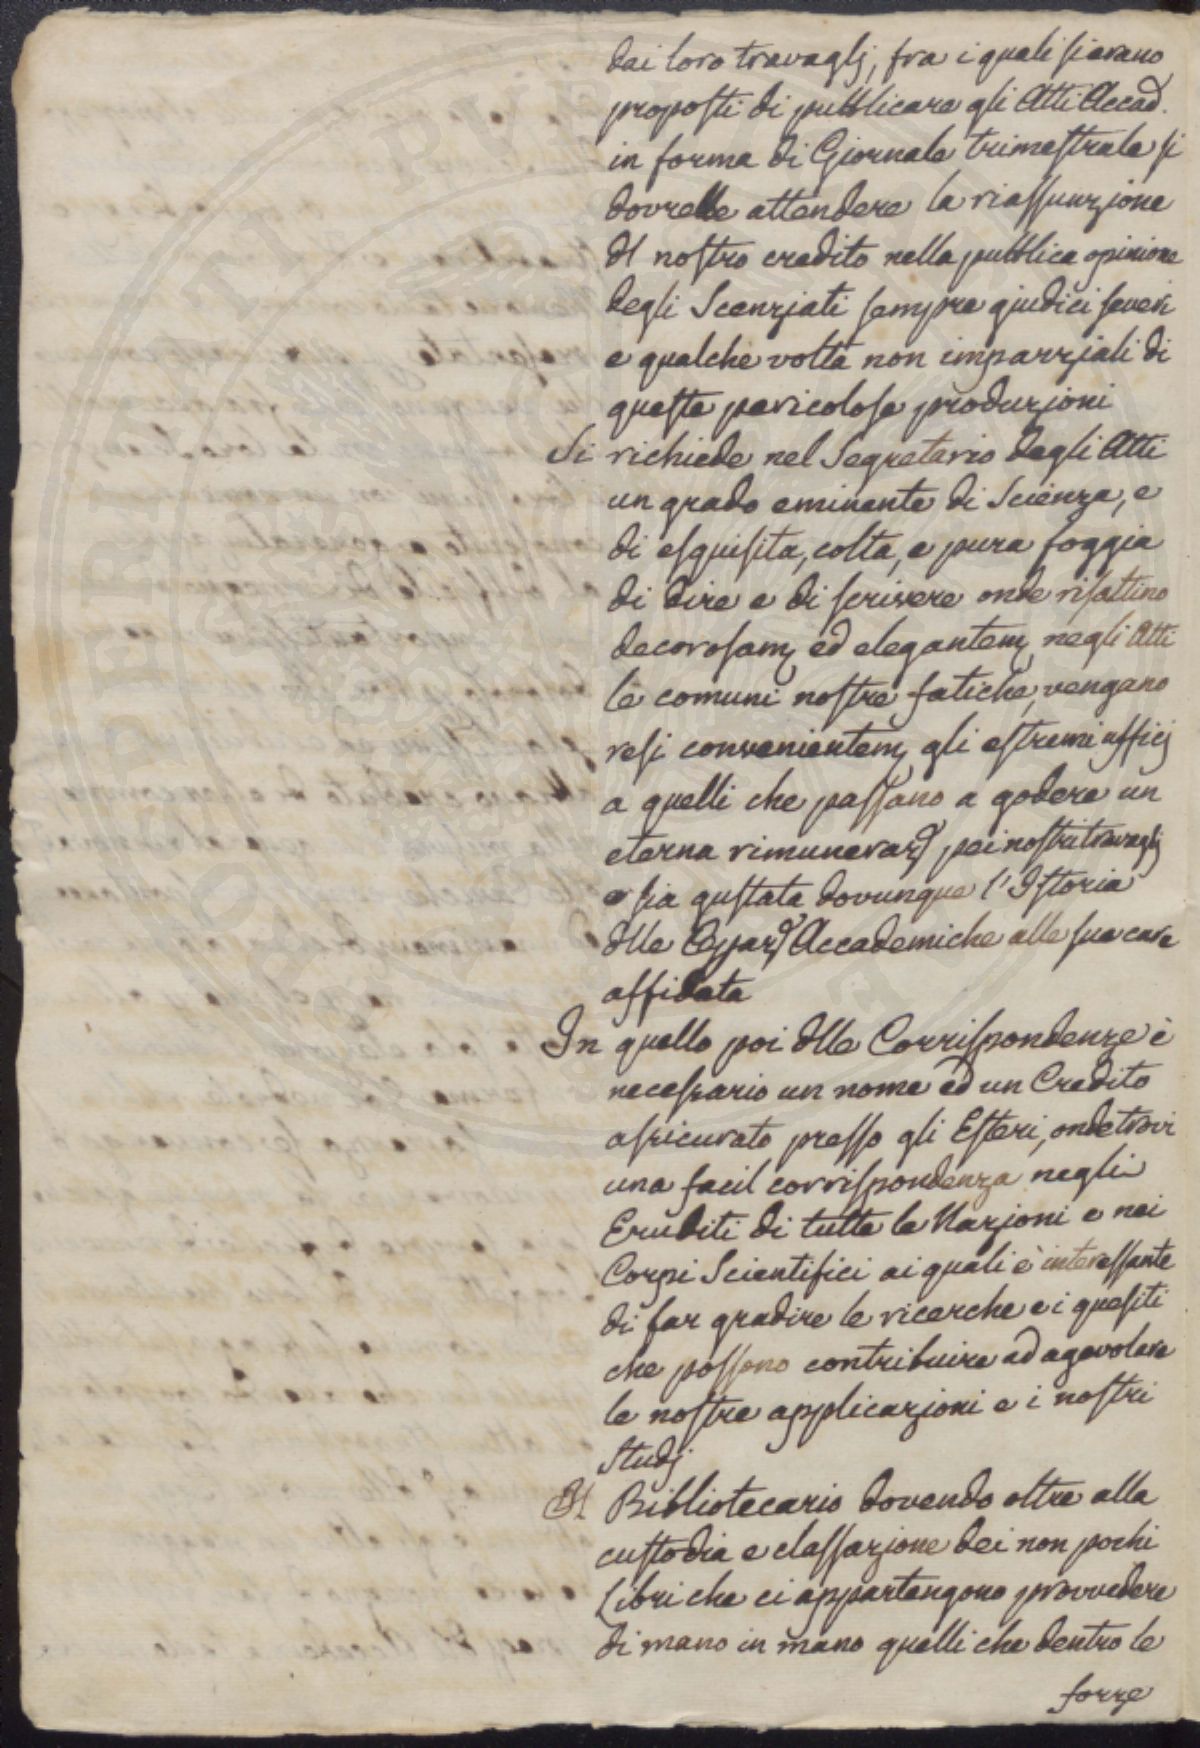 dai loro travaglj, fra i quali si erano
proposti di pubblicare gli Atti Accad.
in forma di Giornale trimestrale si
dovrebbe attendere la riassunzione
dl nostro credito nella pubblica opinione
degli Scenziati sempre giudici severi
e qualche volta non imparziali di
queste pericolose produzioni
Si richiede nel Segretario degli Atti
un grado eminente di Scienza, e
di esquisita, colta, e pura foggia
di dire e di scrivere onde risaltino
decorosam ed elegantem negli Atti
le comuni nostre fatiche, vengano
resi convenientem gli estremi ufficj
a quelli che passano a godere un
eterna rimuneraz pei nostri travaglj
e sia gustata dovunque l'Istoria
dlle Accademiche alle sue cure
affidata
In quello poi dlle Corrispondenze è
necessario un nome ed un Credito
assicurato presso gli Esteri, onde trovi
una facil corrispondenza negli
Eruditi di tutte le Nazioni e nei
Corpi Scientifici ai quali è interessante
di far gradire le ricerche e i quesiti
che possono contribuire ad agevolare
le nostre applicazioni e i nostri
Studj
Il Bibliotecario dovendo oltre alla
custodia e classazione dei non pochi
Libri che ci appartengono provvedere
di mano in mano quelli che dentro le
forze